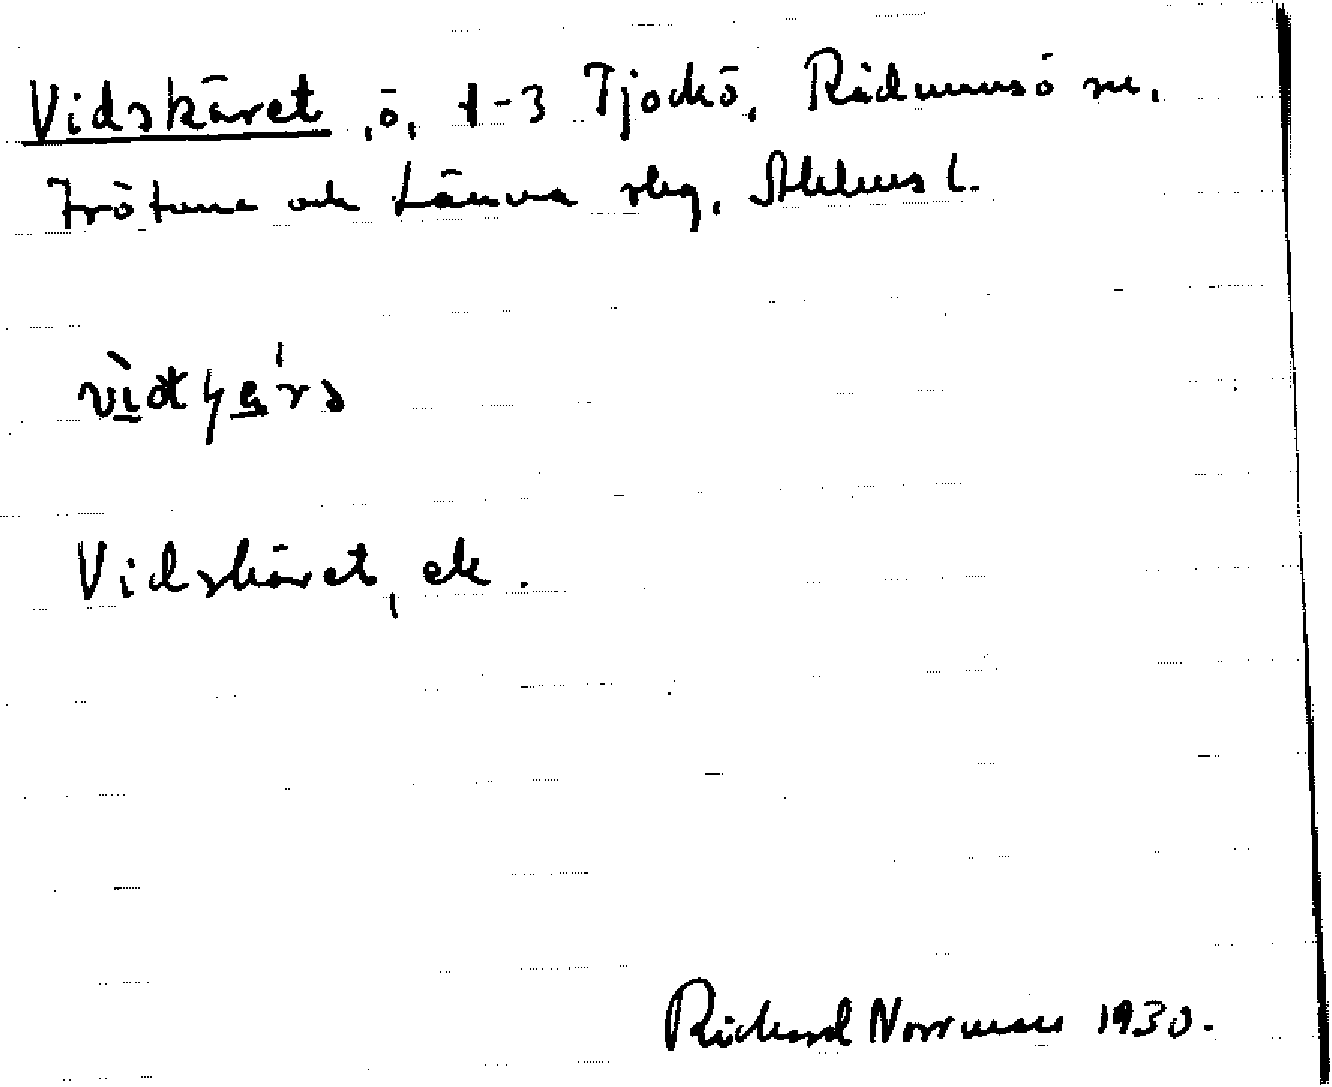 Vidskäret, ö, 1-3 Tjockö, Rådmansö sn.
Frötuna och Länna slg. Sthlms l.
Vidskäret, ek.
Richard Norrman 1930.